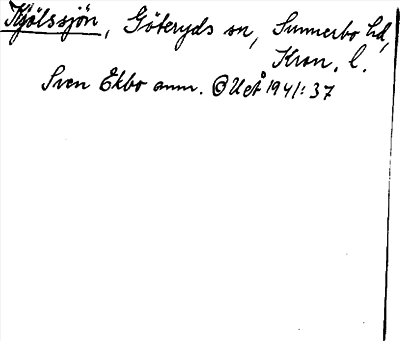 Kjölssjön, Göteryds sn, Sunnerbo hd,
Kron. l.
Sven Ekbo anm. @ UcÅ 1941:37